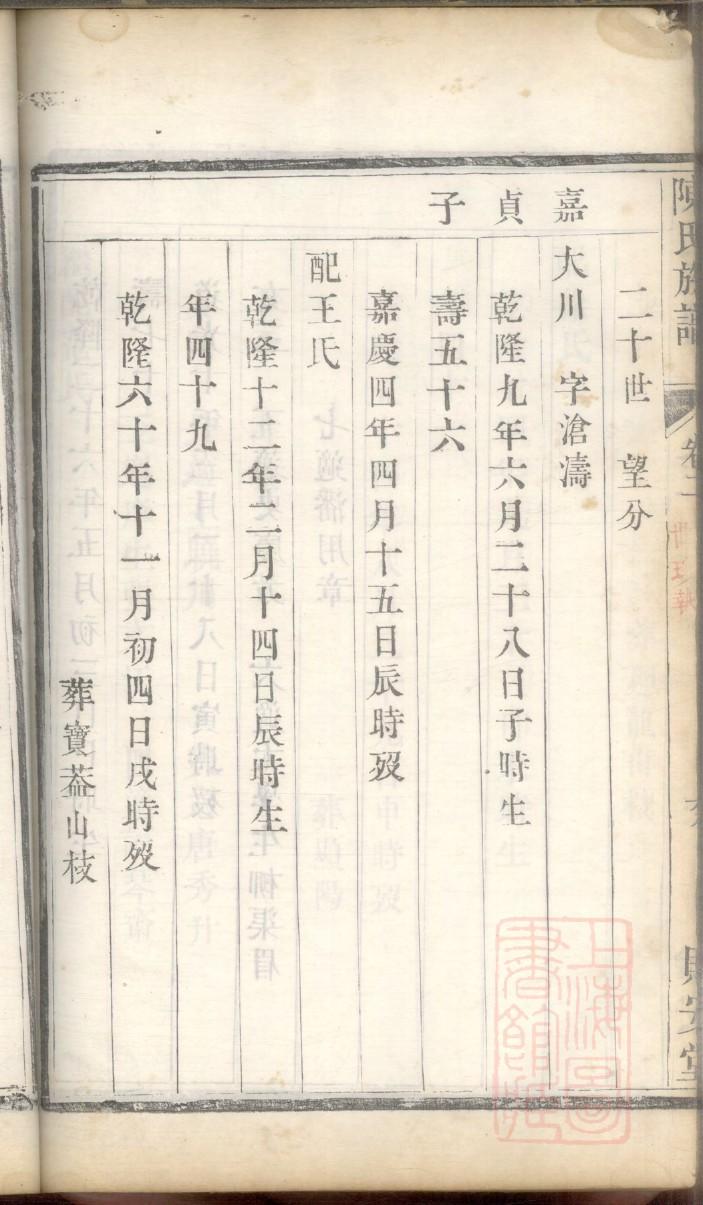 陳氏族譜
卷二
二十世 望分
嘉貞子
大川 字滄濤
乾隆九年六月二十八日子時生
壽五十六
嘉慶四年四月十五日辰時歿
配王氏
乾隆十二年二月十四日辰時生
年四十九
乾隆六十年十一月初四日戌時歿
葬寶葢山枝
上海圖書館藏